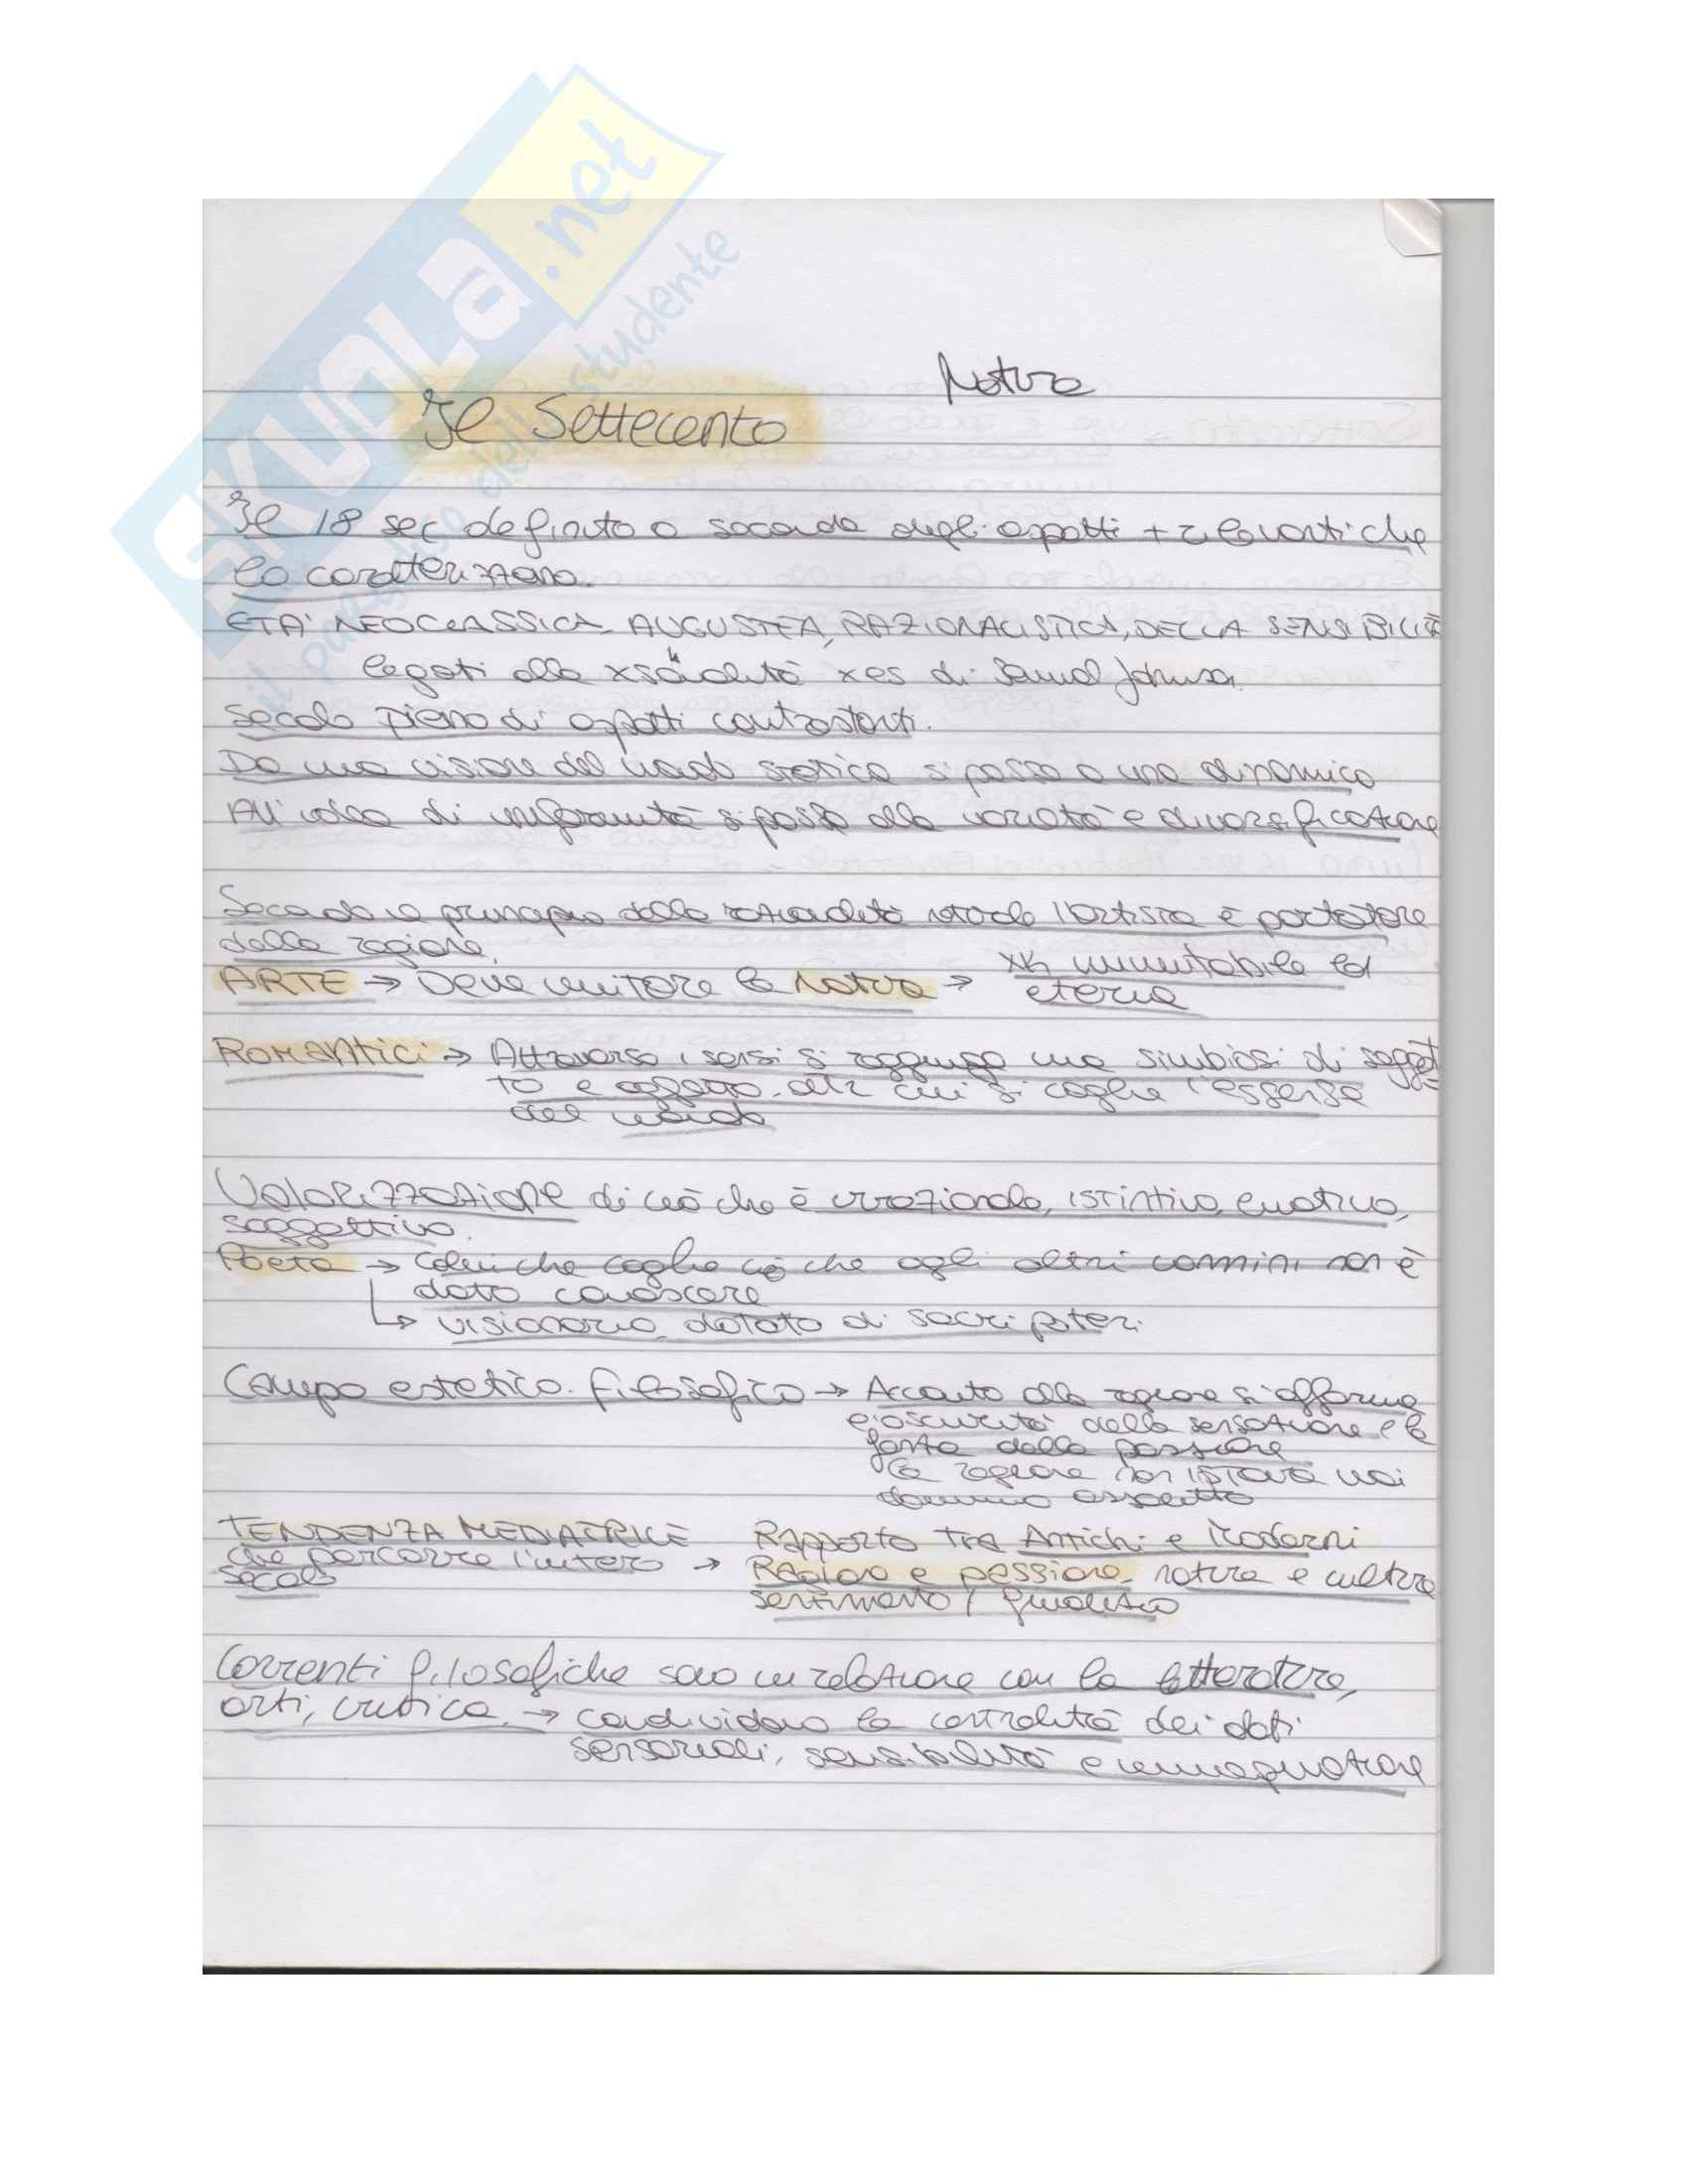 SKUOLA.net
il paradiso dello studente
Natura
Il Settecento
Il 18 sec definito a seconda degli aspetti + rilevanti che
lo caratterizzano.
ETA' NEOCLASSICA, AUGUSTEA, RAZIONALISTICA, DELLA SENSIBILITÀ
legati alla xsonalità xes di Samuel Johnson.
Secolo pieno di aspetti contrastanti.
Da una visione del mondo statica si passa a una dinamica
All'idea di uniformità si passa alla varietà e diversificazione
Secondo il principio della razionalità naturale l'artista è portatore
della ragione.
ARTE → Deve imitare la natura → xk immutabile ed
eterna
ROMANTICI → Attraverso i sensi si raggiunge una simbiosi di sogget
to e oggetto, cui si coglie l'essenza
del mondo
Valorizzazione di ciò che è irrazionale, istintivo, emotivo,
soggettivo.
Poeta → colui che coglie ciò che agli altri uomini non è
dato conoscere
↳ visionario, dotato di sacri poteri
Campo estetico-filosofico → Accanto alla ragione si afferma
l'oscurità della sensazione e la
forza della passione
la ragione non trova mai
dominio assoluto
TENDENZA MEDIATRICE
che percorre l'intero →
secolo
Rapporto tra Antichi e Moderni
Ragione e passione, natura e cultura
sentimento / giudizio
Correnti filosofiche sono in relazione con la letteratura,
arti, critica. → condividono la centralità dei dati
sensoriali, sensibilità e immaginazione